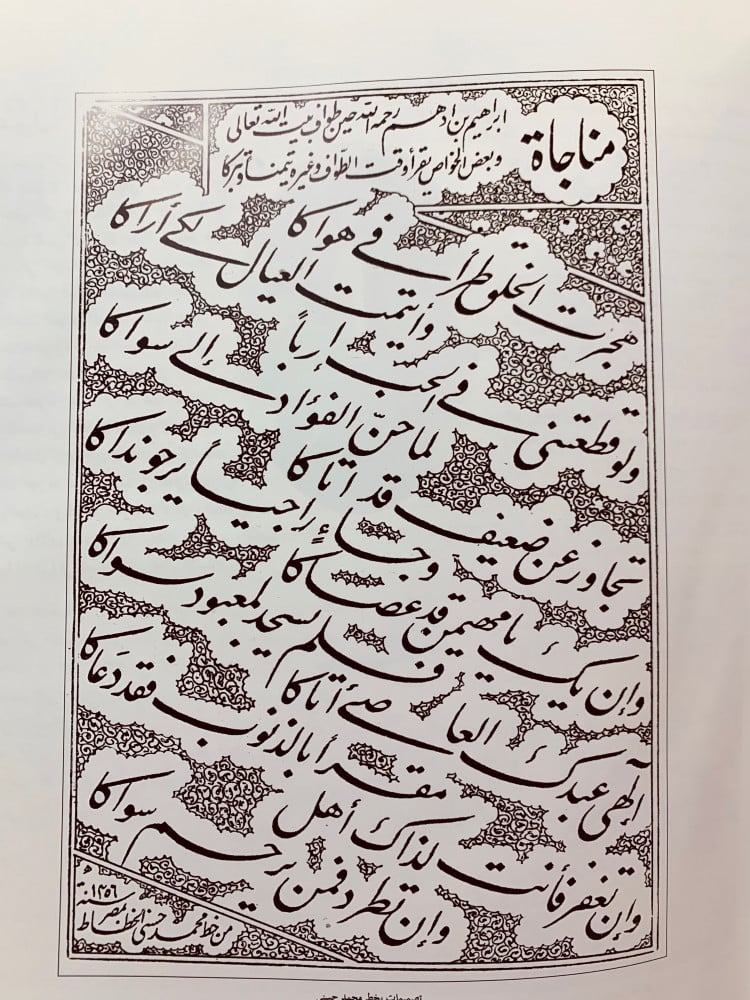 مناجاة
ابراهيم بن ادهم رحمه الله حين طواف بيت الله تعالى
وبعض الخواص يقرأ وقت الطواف وغيره تيمنا وتبركا
هجرت الخلق طراً في هواكا
وأيتمت العيال لكي أراكا
ولو قطعتني في الحب إرباً
لما حنّ الفؤاد إلى سواكا
تجاوز عن ضعيف قد اتاكا
وجاء راجياً يرجو نداكا
وإن يك يا مهيمن قد عصاكا
فلم يسجد لمعبود سواكا
آلهي عبدك العاصي أتاكا
مقراً بالذنوب فقد دعاكا
وإن تغفر فأنت لذاك أهل
وإن تطرد فمن يرحم سواكا
من خط محمد حسني الخطاط بمصر
سنة ١٣٥٦
تصميمات بخط محمد حسني